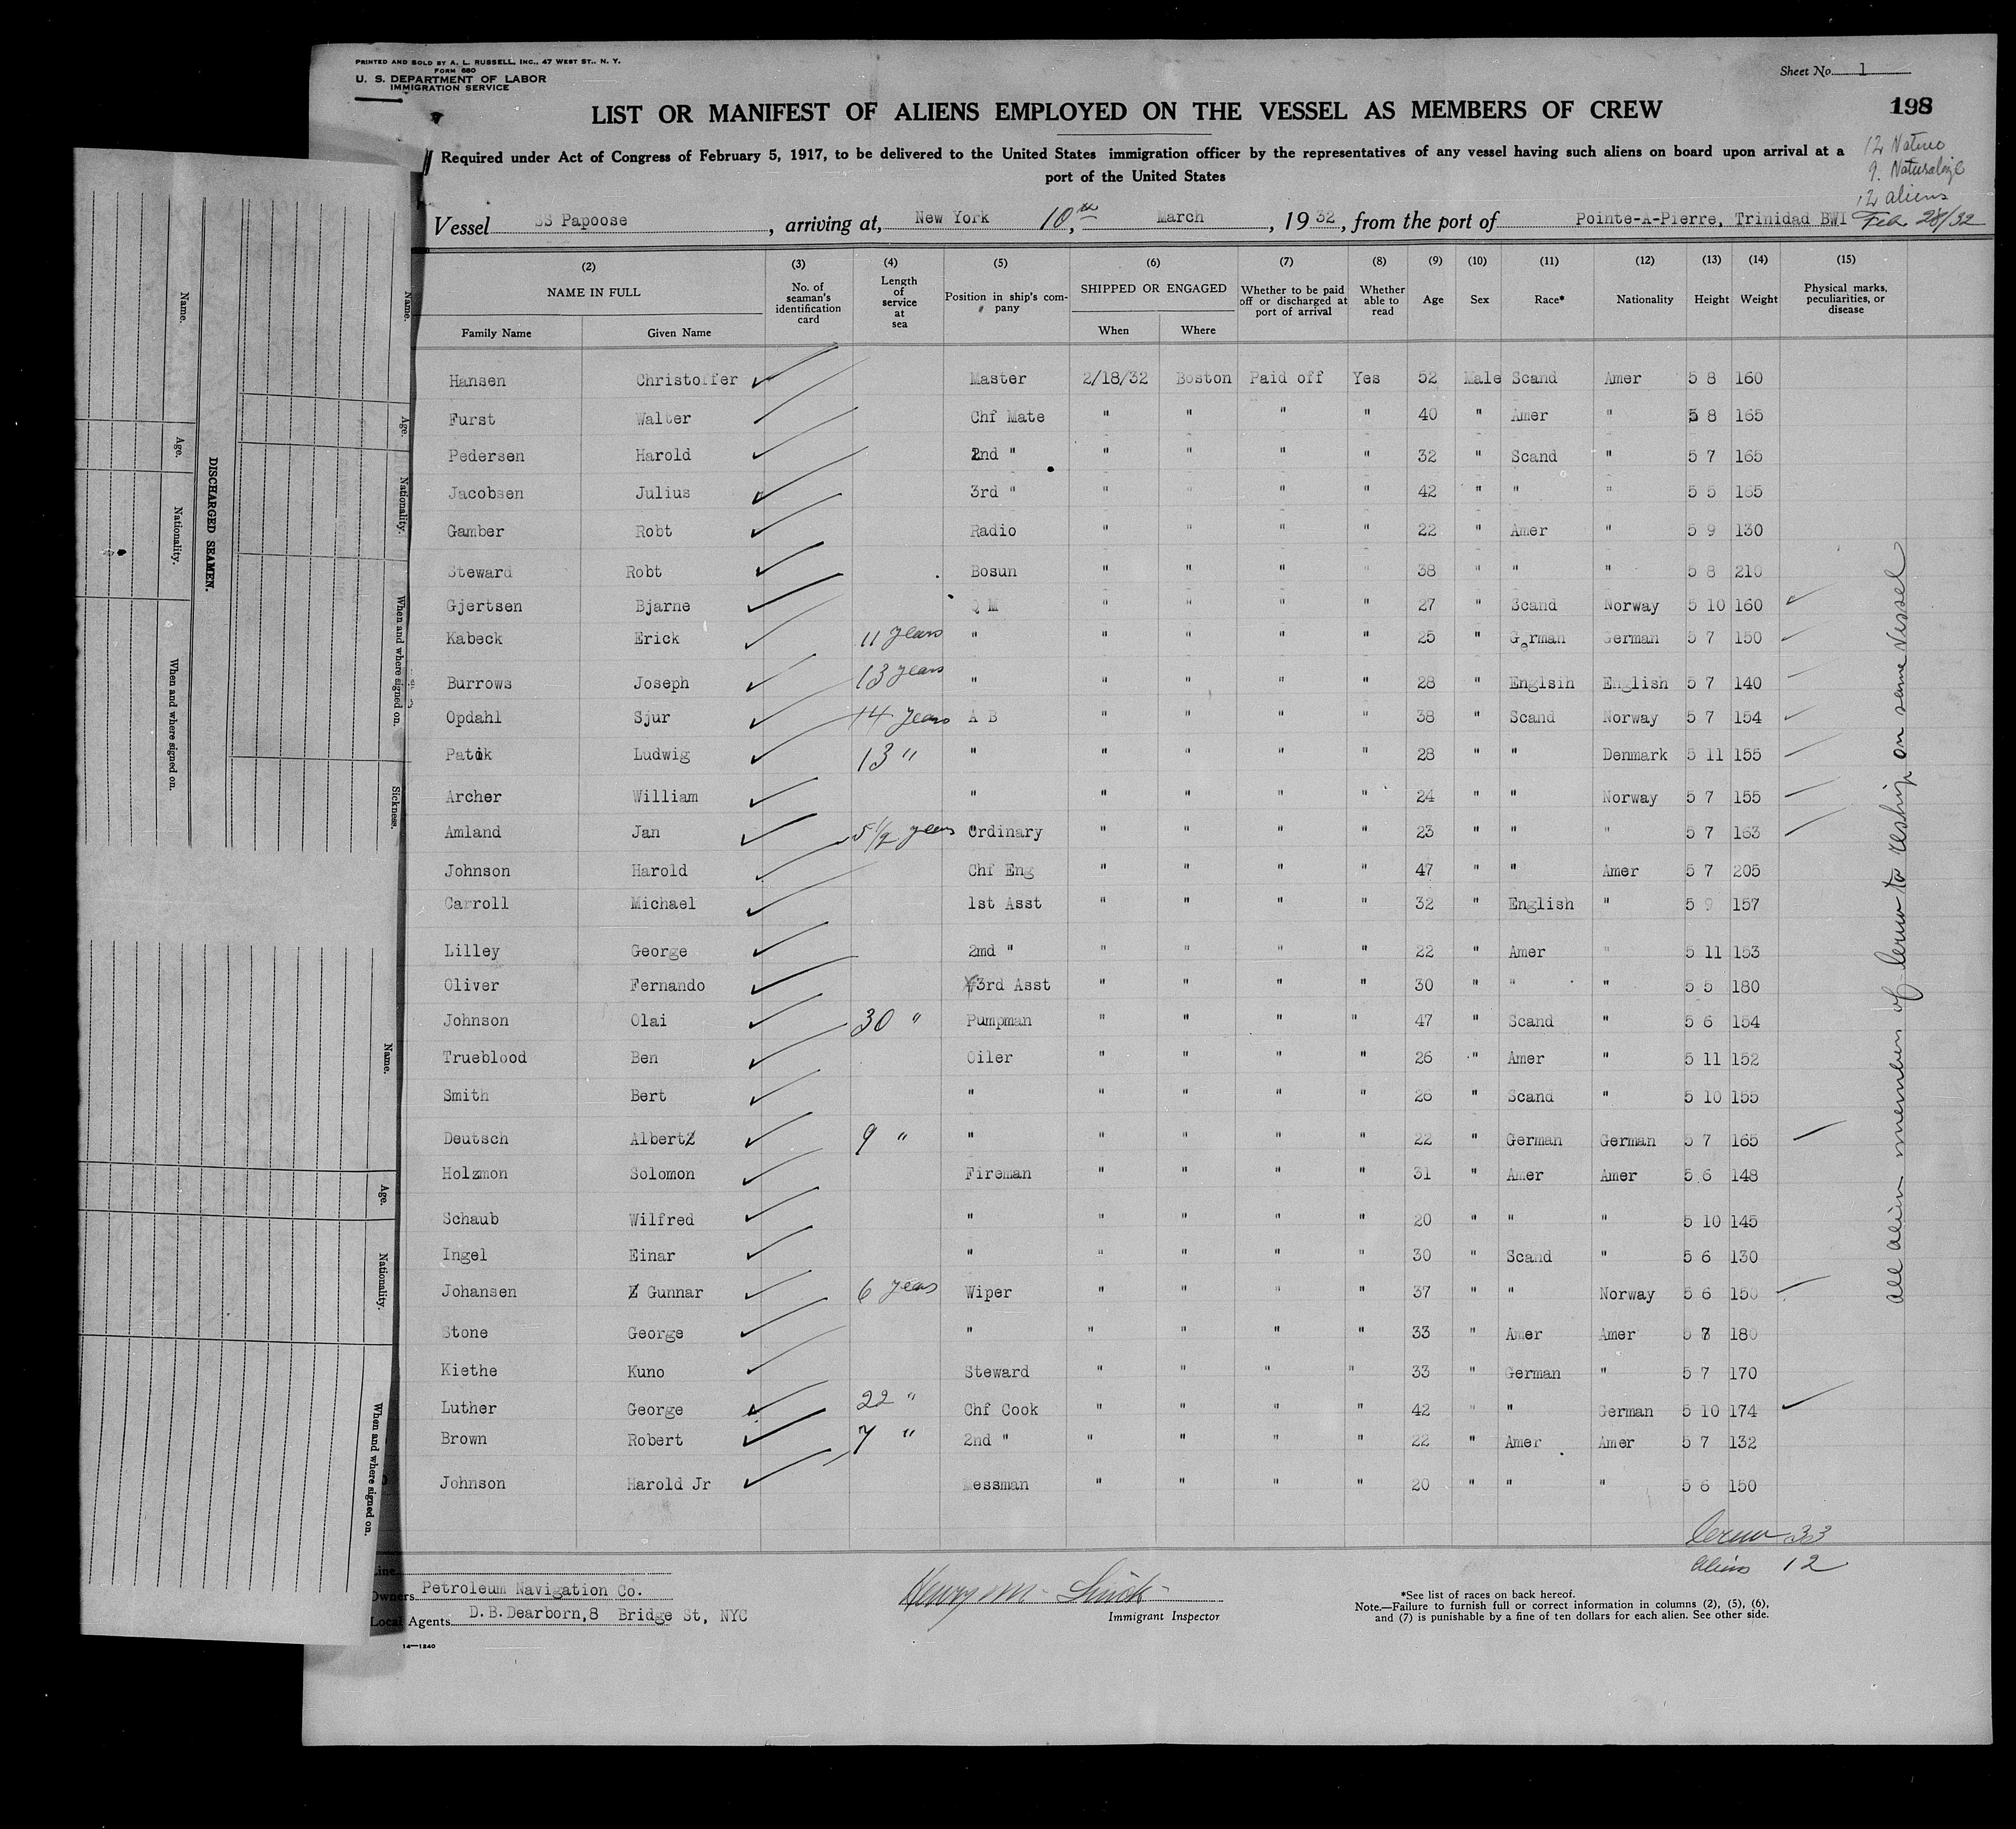 PRINTED AND SOLD BY A. L. RUSSELL, INC., 47 WEST ST., N. Y.
FORM 680
U. S. DEPARTMENT OF LABOR
IMMIGRATION SERVICE
Sheet No. 1
LIST OR MANIFEST OF ALIENS EMPLOYED ON THE VESSEL AS MEMBERS OF CREW
198
Required under Act of Congress of February 5, 1917, to be delivered to the United States immigration officer by the representatives of any vessel having such aliens on board upon arrival at a
port of the United States
9. Naturalize
12 aliens
Vessel SS Papoose, arriving at, New York 10th, March, 1932, from the port of Pointe-A-Pierre, Trinidad BWI Feb 28/32
(2) (3) (4) (5) (6) (7) (8) (9) (10) (11) (12) (13) (14) (15)
NAME IN FULL No. of seaman's identification card Length of service at sea Position in ship's com-pany SHIPPED OR ENGAGED Whether to be paid off or discharged at port of arrival Whether able to read Age Sex Race* Nationality Height Weight Physical marks, peculiarities, or disease
Family Name Given Name When Where
Hansen Christoffer Master 2/18/32 Boston Paid off Yes 52 Male Scand Amer 5 8 160
Furst Walter Chf Mate " " " " 40 " Amer " 5 8 165
Pedersen Harold 2nd " " " " " 32 " Scand " 5 7 165
Jacobsen Julius 3rd " " " " " 42 " " " 5 5 165
Gamber Robt Radio " " " " 22 " Amer " 5 9 130
Steward Robt Bosun " " " " 38 " " " 5 8 210
Gjertsen Bjarne Q M " " " " 27 " Scand Norway 5 10 160
Kabeck Erick 11 years " " " " " 25 " German German 5 7 150
Burrows Joseph 13 years " " " " " 28 " Englsih English 5 7 140
Opdahl Sjur 14 years A B " " " " 38 " Scand Norway 5 7 154
Patik Ludwig 13 " " " " " " 28 " " Denmark 5 11 155
Archer William " " " " " 24 " " Norway 5 7 155
Amland Jan 5 1/2 years Ordinary " " " " 23 " " " 5 7 163
Johnson Harold Chf Eng " " " " 47 " " Amer 5 7 205
Carroll Michael 1st Asst " " " " 32 " English " 5 9 157
Lilley George 2md " " " " " 22 " Amer " 5 11 153
Oliver Fernando 3rd Asst " " " " 30 " " " 5 5 180
Johnson Olai 30 " Pumpman " " " " 47 " Scand " 5 6 154
Trueblood Ben Oiler " " " " 26 " Amer " 5 11 152
Smith Bert " " " " " 26 " Scand " 5 10 155
Deutsch Albert 9 " " " " " " 22 " German German 5 7 165
Holzmon Solomon Fireman " " " " 31 " Amer Amer 5 6 148
Schaub Wilfred " " " " " 20 " " " 5 10 145
Ingel Einar " " " " " 30 " Scand " 5 6 130
Johansen Gunnar 6 years Wiper " " " " 37 " " Norway 5 6 150
Stone George " " " " " 33 " Amer Amer 5 8 180
Kiethe Kuno Steward " " " " 33 " German " 5 7 170
Luther George 22 " Chf Cook " " " " 42 " " German 5 10 174
Brown Robert 7 " 2nd " " " " " 22 " Amer Amer 5 7 132
Johnson Harold Jr Messman " " " " 20 " " " 5 6 150
all alien members of Crew to reship on same vessel
Crew 33
Aliens 12
Line
Owners Petroleum Navigation Co.
Local Agents D.B.Dearborn,8 Bridge St, NYC
14—1240
Immigrant Inspector
*See list of races on back hereof.
Note.—Failure to furnish full or correct information in columns (2), (5), (6),
and (7) is punishable by a fine of ten dollars for each alien. See other side.
DISCHARGED SEAMEN.
Name. Age. Nationality. When and where signed on.
Name. Age. Nationality. When and where signed on. Sickness.
Name. Age. Nationality. When and where signed on.